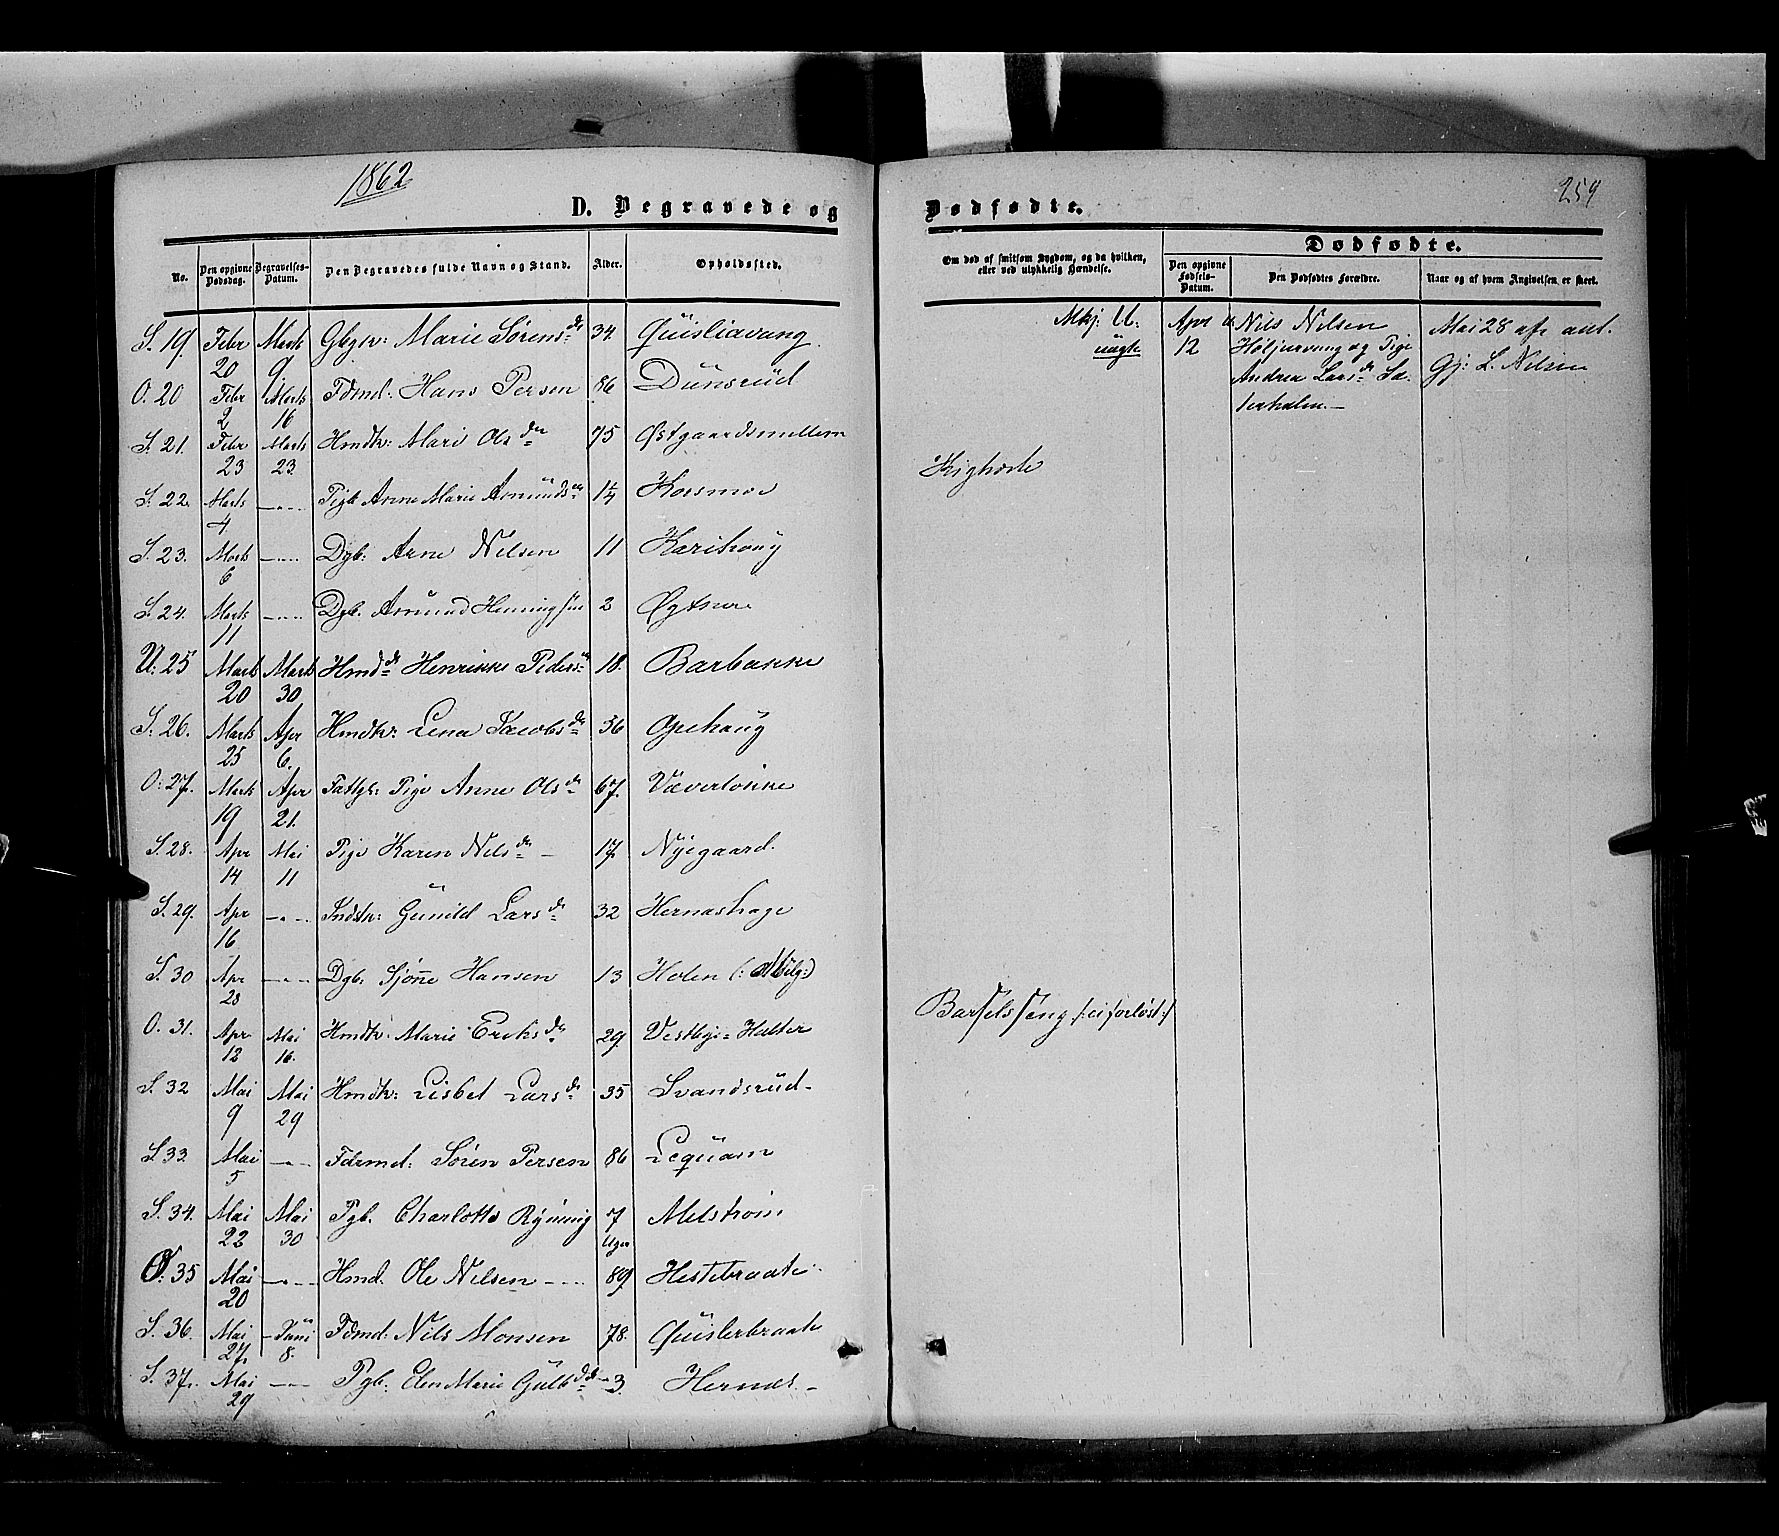 1862
D. Begravede og
No. Den opgivne Dødsdag. Begravelses-Datum. Den Begravedes fulde Navn og Stand. Alder. Opholdssted.
S. 19. Febr 20 Marts 9 Gbgkr: Marie Sørensdr 34. Quisliavang
O. 20 Febr 2 Marts 16 Fdmd. Hans Persen 86 Dunsrud
S. 21. Febr 23 Marts 23. Hmdk: Mari Olsdr 75 Østgaardsmellem
S. 22. Marts 4 — Pigb. Anne Marie Amundsdr 1¼ Korsmoe
S. 23. Marts 6 — Dgb: Arne Nilsen 11 Karihaug
S. 24. Marts 11 — Dgb. Amund Henningsen 2
U. 25 Marts 20 Marts 30 Hmdsdr Henrikke Pedersdr 18. Barbakke
S. 26. Marts 25 Apr 6. Hmdk: Lena Jacobsdr 56 Grehaug
O: 27. Marts 19 Apr 21. Fattgl: Pige Anne Olsdr 67. Væverløkke
S. 28. Apr 14 Mai 11 Pige Karen Nilsdr — 17 Nyegaard.
S. 29. Apr 16 — Indsk: Gunild Larsdr 32 Hernæshage
S. 30 Apr 28 — Dgb: Sjønne Hansen 13 Holen
O. 31. Apr 12 Mai 16. Hmdk: Marie Eriksdr 29 Vestbye=Halter
S. 32 Mai 9 Mai 29 Hmdk: Lisbet Larsdr 35 Svandsrud-
S 33. Mai 5 — Fdrmd: Søren Persen 86 Lequam
S. 34. Mai 22 Mai 30 Pgb. Charlotte Rynnig 7 Uger Melstrøm
O: 35 Mai 20 — Hmd. Ole Nilsen — 89 Hestebraate.
S. 36. Mai 27. Juni 8. Fdmd: Nils Monsen 78. Quislerbraate
S. 37. Mai 29 — Pgb: Elen Marie Gulbdr — 3. Hernæs-
259
Dødfødte.
Om død af smitsom Sygdom, og da hvilken, eller ved ulykkelig Hændelse.
Dødfødte.
Den opgivne Fødsels-Datum. Den Dødfødtes Forældre. Naar og af hvem Angivelsen er skeet.
Mkj: U: Apr 12 Nils Nilsen Mai 28 af
uægte Høljervang og Pige Gj: L. Nilsen
Andrea Larsdr Sæ-
terholen.—
Kighoste
Barselsseng /: ei forløst :/